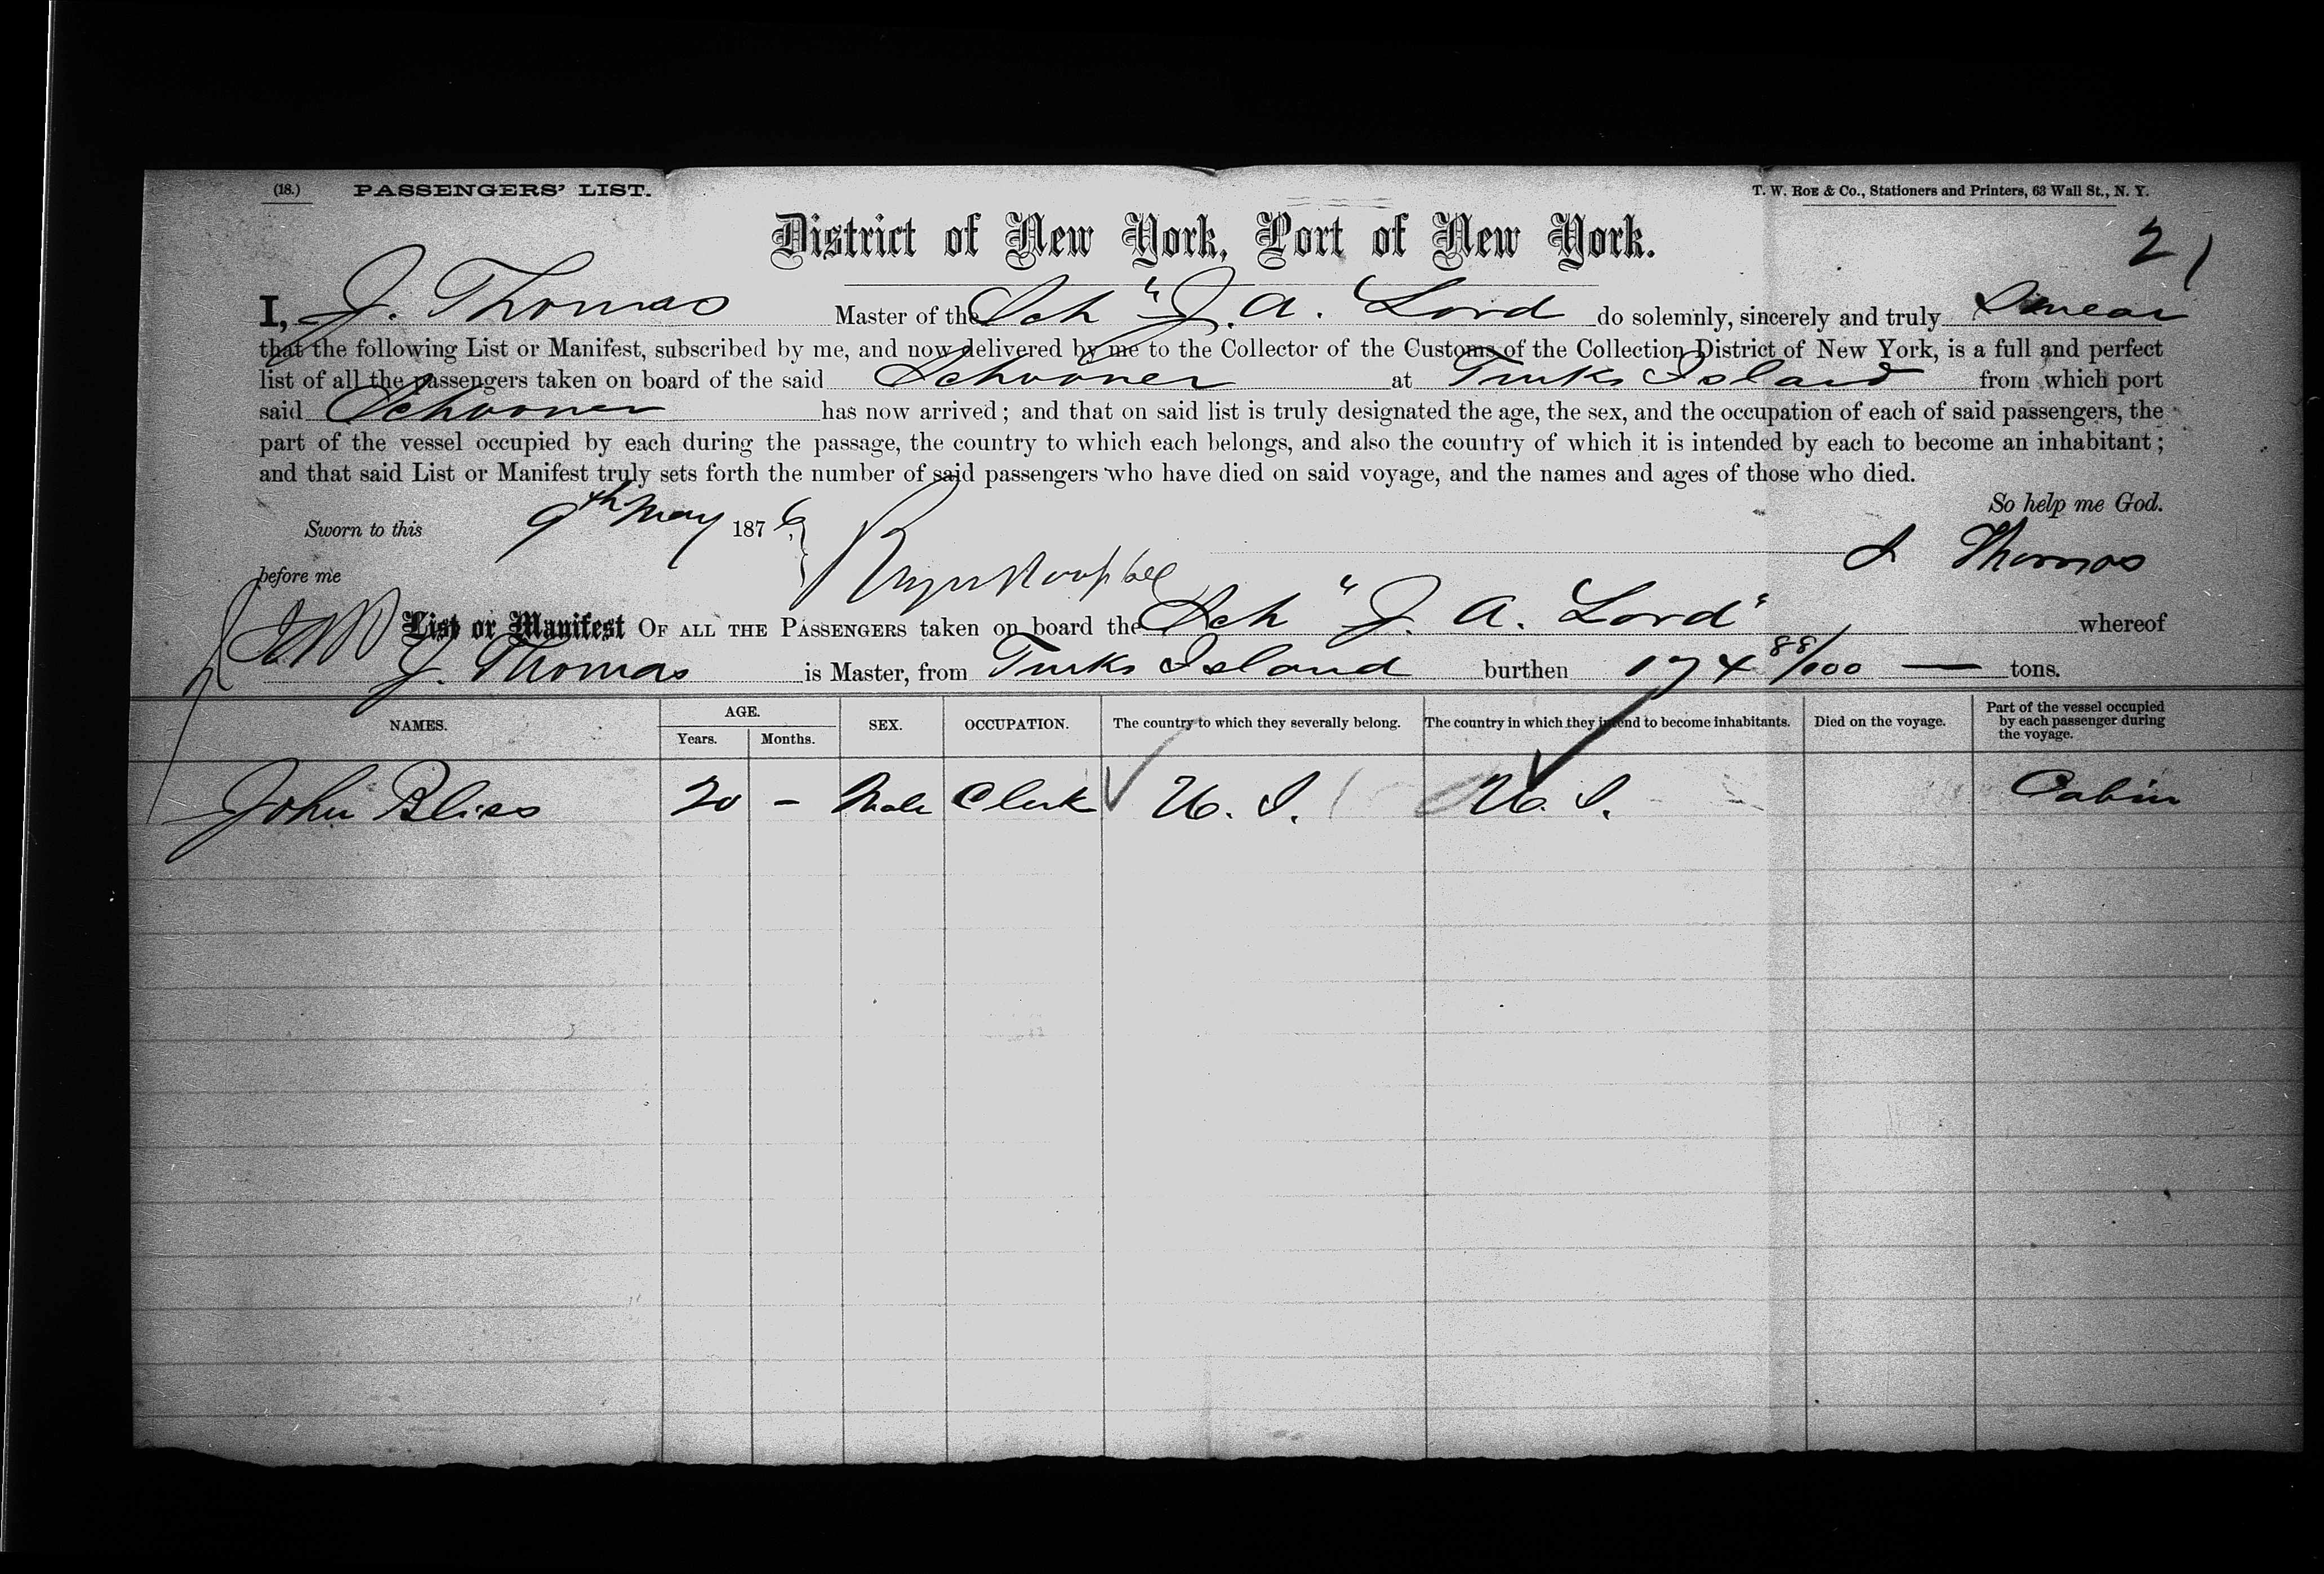 (18.) PASSENGERS' LIST. T. W. ROE & Co., Stationers and Printers, 63 Wall St., N. Y.
District of New York, Port of New York.
21
I, J. Thomas Master of the Sch "J. A. Lord do solemnly, sincerely and truly Swear
that the following List or Manifest, subscribed by me, and now delivered by me to the Collector of the Customs of the Collection District of New York, is a full and perfect
list of all the passengers taken on board of the said Schooner at Turks Island from which port
said Schooner has now arrived; and that on said list is truly designated the age, the sex, and the occupation of each of said passengers, the
part of the vessel occupied by each during the passage, the country to which each belongs, and also the country of which it is intended by each to become an inhabitant;
and that said List or Manifest truly sets forth the number of said passengers who have died on said voyage, and the names and ages of those who died.
So help me God.
Sworn to this 9th May 1876
J Thomas
before me
List or Manifest OF ALL THE PASSENGERS taken on board the Sch "J. A. Lord" whereof
J. Thomas is Master, from Turks Island burthen 174 88/100 — tons.
NAMES. AGE. Years. Months. SEX. OCCUPATION. The country to which they severally belong. The country in which they intend to become inhabitants. Died on the voyage. Part of the vessel occupied by each passenger during the voyage.
John Bliss 20 – Male Clerk U. S. U. S. Cabin